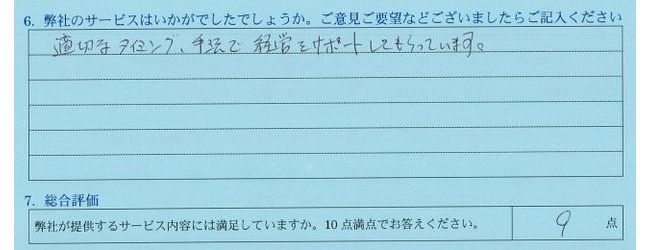 6. 弊社のサービスはいかがでしたでしょうか。ご意見ご要望などございましたらご記入ください
適切なタイミング、手法で経営をサポートしてもらっています。
7. 総合評価
弊社が提供するサービス内容には満足していますか。10点満点でお答えください。 9 点